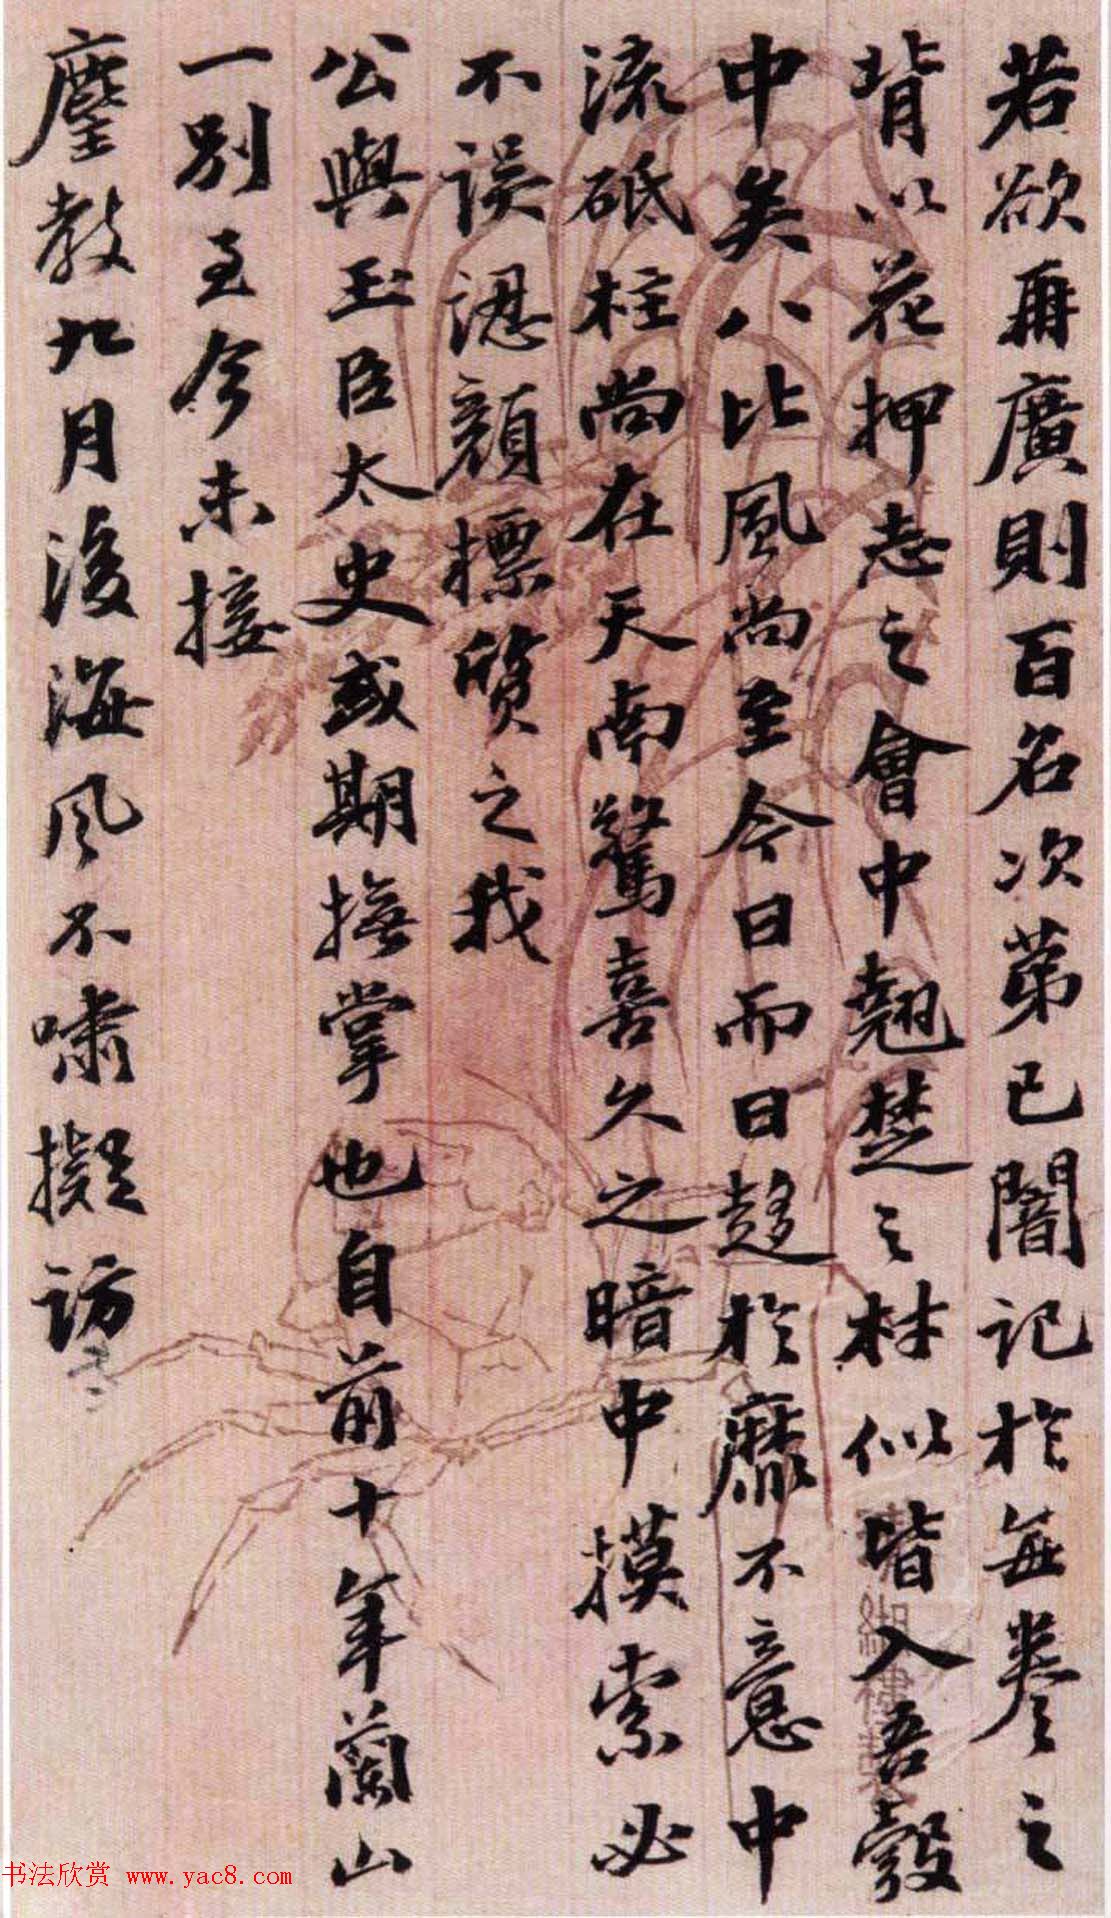 若欲再廣則百名次第已闇記於每卷之
背以花押志之會中翹楚之材似皆入吾彀
中矣八比風尚至今日而日趨於靡不意中
流砥柱尚在天南驚喜久之暗中摸索必
不誤認顏標質之我
公與玉臣太史或期撫掌也自前十年蘭山
一別至今未接
麈教九月後海風不嘯擬訪
书法欣赏 www.yac8.com